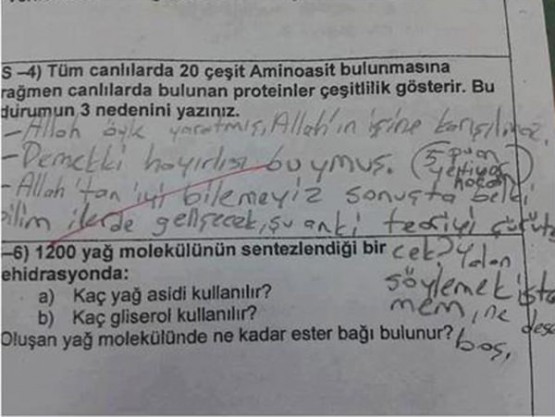 S-4) Tüm canlılarda 20 çeşit Aminoasit bulunmasına
rağmen canlılarda bulunan proteinler çeşitlilik gösterir. Bu
durumun 3 nedenini yazınız.
- Allah öyle yaratmış, Allah'ın işine karışılmaz.
- Demekki hayırlısı buymuş. (5 puan
yetiyor
hocam)
- Allah'tan iyi bilemeyiz sonuçta belki
bilim ilerde gelişecek, şu anki teoriyi çürüte
cek? Yalan
söylemek iste
mem, ne desem
boş,
-6) 1200 yağ molekülünün sentezlendiği bir
ehidrasyonda:
a) Kaç yağ asidi kullanılır?
b) Kaç gliserol kullanılır?
Oluşan yağ molekülünde ne kadar ester bağı bulunur?